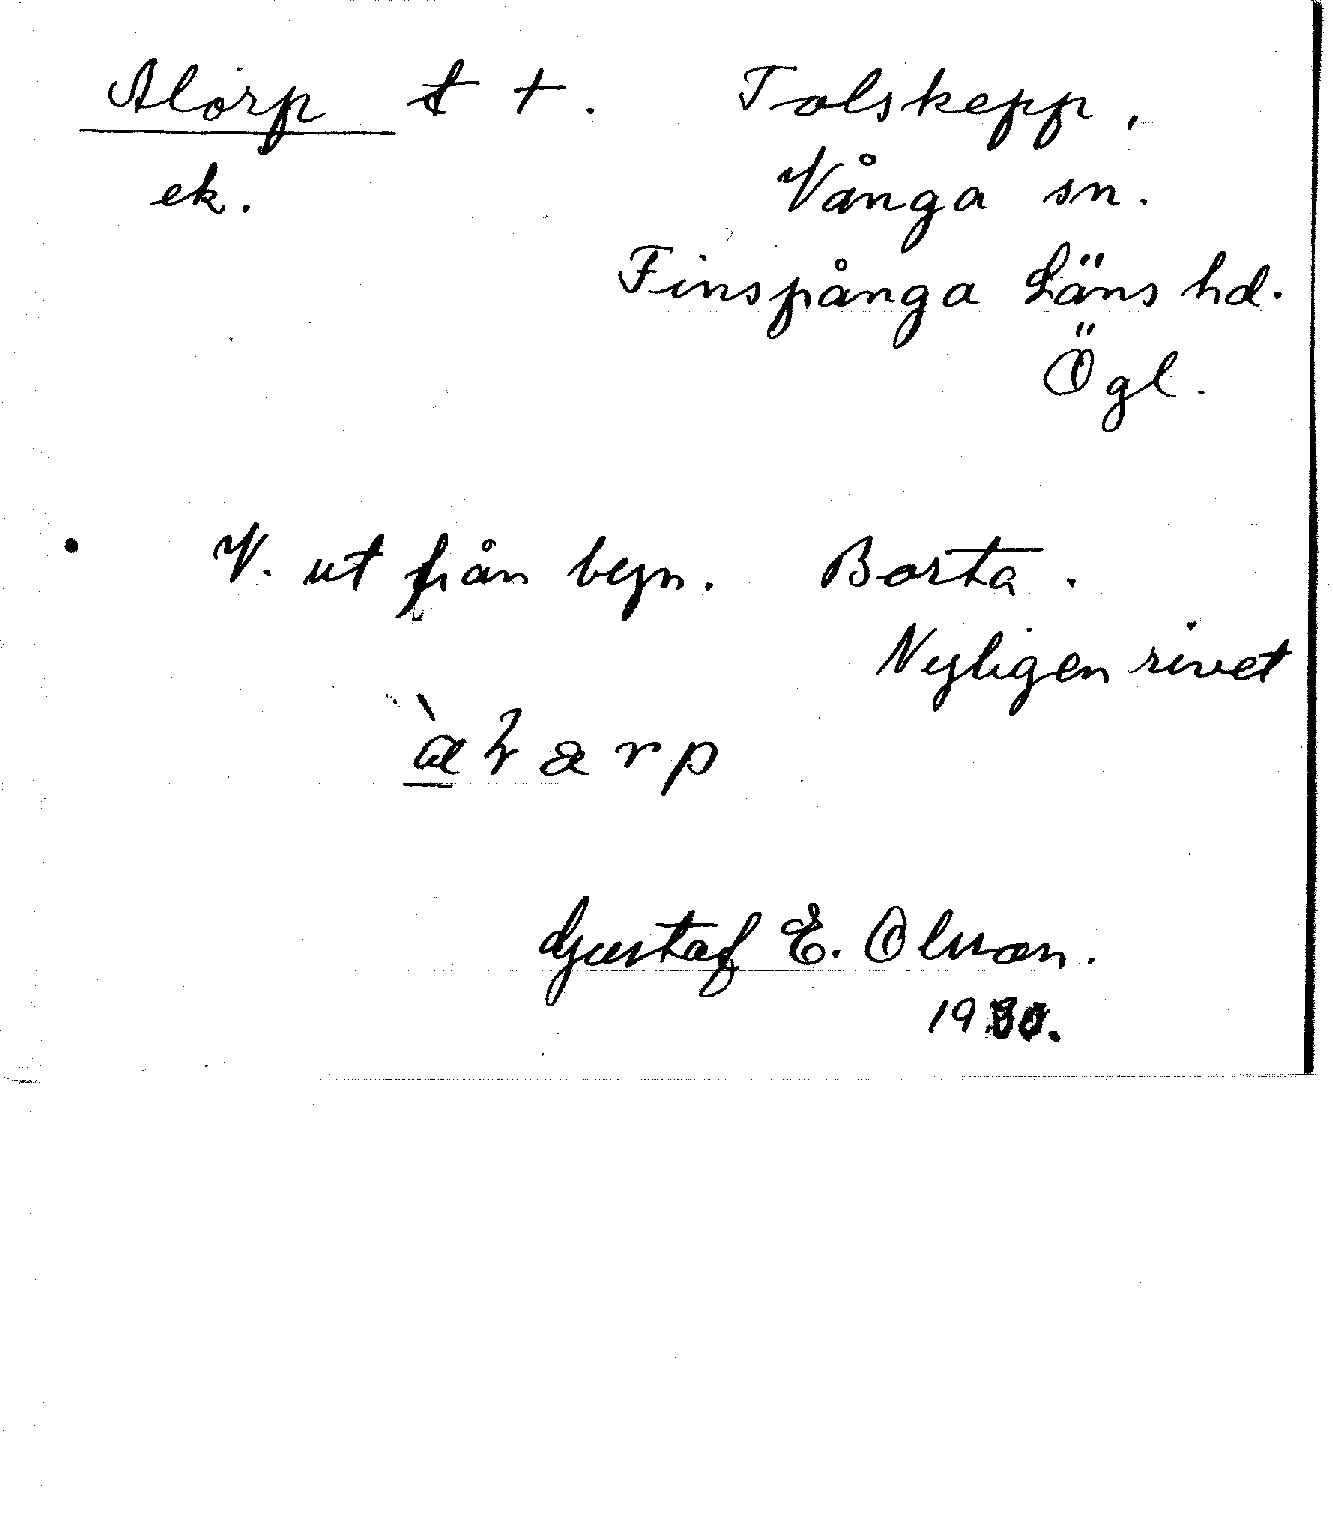 Alorp t +. Tolskepp,
ek. Vånga sn.
Finspånga Läns hd.
Ögl.
V. ut från byn. Borta.
Nyligen rivet
Gustaf E. Olsson.
1930.